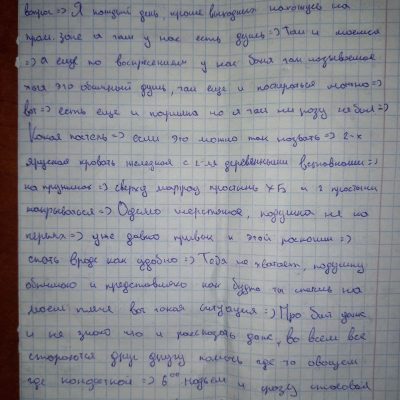 вопрос=) Я каждый день, кроме выходных нахожусь на
пром. зоне а там у нас есть душ=) Там и моемся
=) а ещё по воскресеньям у нас баня так называемая
хотя это обычный душ, там ещё и постираться можно=)
вот=) есть ещё и но я там ни разу не был=)
Какая постель=) если это можно так назвать=) 2-х
ярусная кровать железная с 2-мя деревянными
на пружинах=) сверху матрац простынь ХБ и 2 простыни
накрываться=) Одеяло шерстяное, подушка не на
перьях=) уже давно привык к этой роскоши=)
спать вроде как удобно=) Тебя не хватает, подушку
обнимаю и представляю как будто ты спишь на
моём плече вот такая ситуация=) Про быт даже
и не знаю что и рассказать даже, во всём все
стараются друг другу помочь где то овощем
где конфеткой=) 6⁰⁰ подъём и сразу